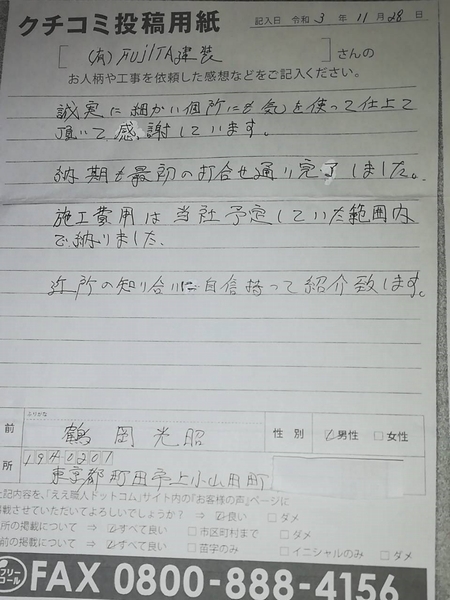 クチコミ投稿用紙
記入日 令和 3 年 11 月 28 日
(有)FUJITA塗装 さんの
お人柄や工事を依頼した感想などをご記入ください。
誠実に細かい個所にも気を使って仕上て
頂いて感謝しています。
納期も最初のお打合せ通り完了しました。
施工費用は当社予定していた範囲内
で納りました。
近所の知り合いに自信持って紹介致します。
ふりがな
前 鶴岡光昭 性別 ☑男性 □女性
所 1940201
東京都町田市上小山田町
上記内容を、「ええ職人ドットコム」サイト内の『お客様の声』ページに
掲載させていただいてよろしいでしょうか? ⇒ ☑良い □ダメ
所の掲載について ⇒ ☑すべて良い □市区町村まで □ダメ
前の掲載について ⇒ ☑すべて良い □苗字のみ □イニシャルのみ □ダメ
フリーコール FAX 0800-888-4156